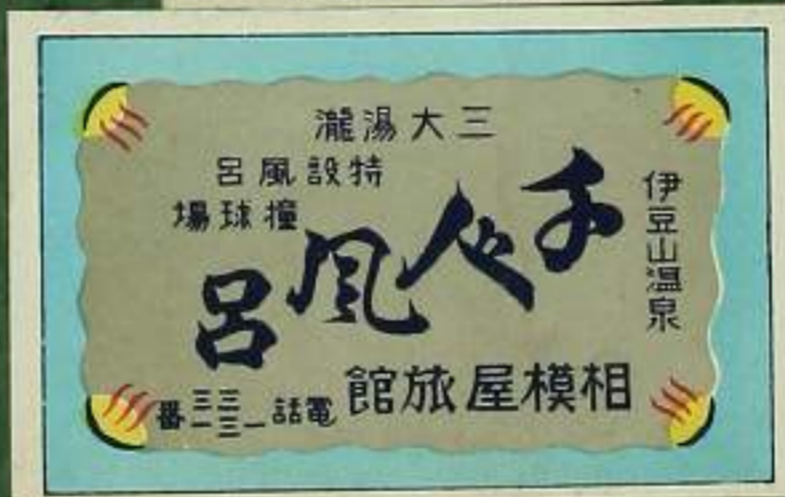 伊豆山温泉
三大湯瀧
特設風呂
撞球場
千人風呂
相模屋旅館
電話一三三一三一番